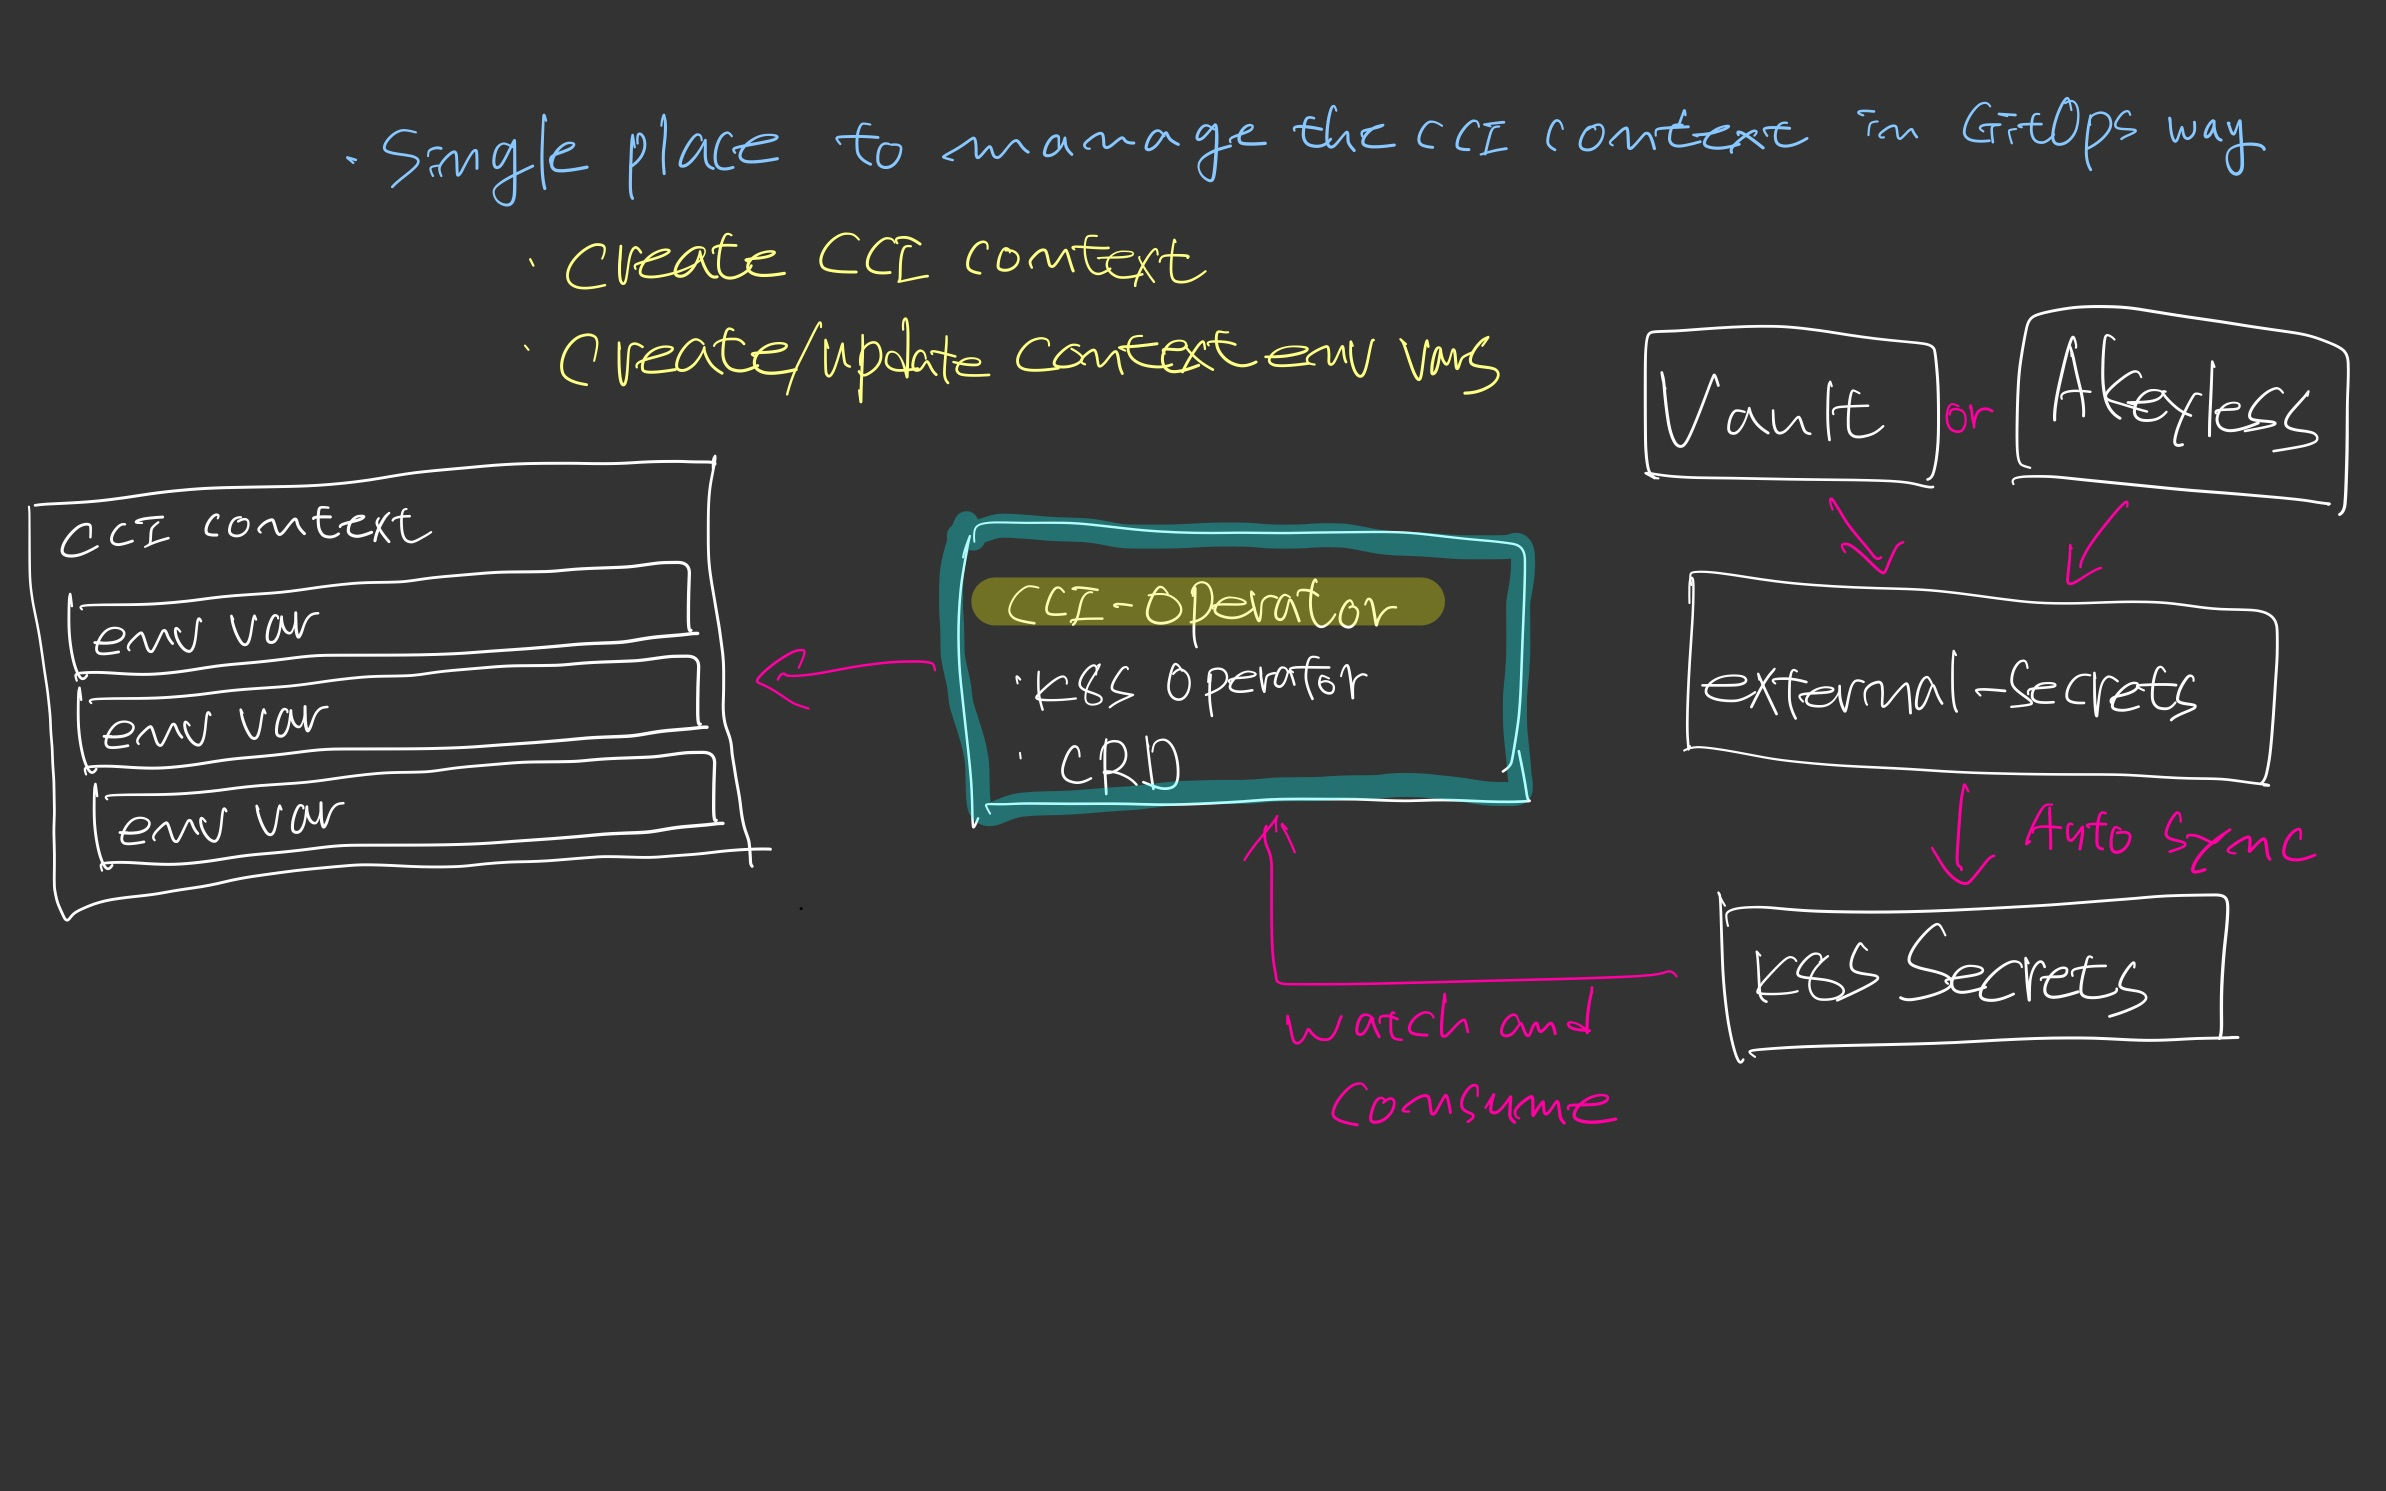 · Single place to manage the CCI context in GitOps way
· Create CCI context
· Create/update context env vars
Vault or Akeyless
CCI context
env var
env var
env var
CCI-Operator
· K8S Operator
· CRD
external-secrets
Auto Sync
K8S Secrets
Watch and
Consume